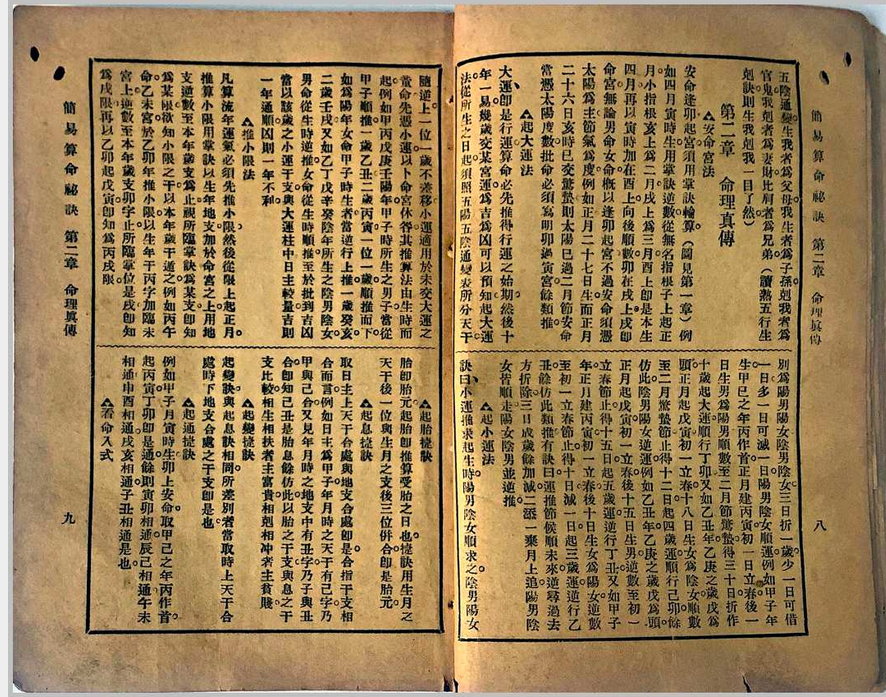 簡易算命祕訣 第二章 命理眞傳
五陰通變生我者爲父母我生者爲子孫剋我者爲
官鬼我剋者爲妻財比肩者爲兄弟(讀熟五行生
剋訣則生我剋我一目了然)
第二章 命理眞傳
▲安命宮法
安命逢卯起宮須用掌訣輪算(圖見第一章)例
如四月寅時生用掌訣逆數從無名指根子上起正
月小指根亥上爲二月戌上爲三月酉上卽是本生
四月再以寅時加在酉上向後順數卯在戌上戌卽
命宮無論男命女命槪以逢卯起宮不過安命須憑
太陽爲主節氣爲度例如正月二十七日生而正月
二十六日亥時已交驚蟄則太陽已過二月節安命
當憑太陽度數批命必須寫明卯過寅宮餘類推
▲起大運法
大運卽是行運算命必先推得行運之始期然後十
年一易幾歲交某宮運爲吉爲凶可以預知起大運
法從所生之日起須照五陽五陰通變表所分天干
別爲陽男陽女陰男陰女三日折一歲少一日可借
一日多一日可減一日陽男陰女順運例如甲子年
生甲巳之年丙作首正月建丙寅初一日立春後一
日生男爲陽男順數至二月節驚蟄得三十日折作
十歲起大運順行丁卯又如乙丑年乙庚之歲戊爲
頭正月起戊寅初一立春十八日生女爲陰女順數
至二月驚蟄節止得十二日起四歲運順行己卯餘
仿此陰男陽女逆運例如乙丑年乙庚之歲戊爲頭
正月起戊寅初一立春後十五日生男逆數至初一
立春節止得十五日起五歲運逆行丁丑又如甲子
年正月建丙寅初一立春後十日生女爲陽女逆數
至初一立春節止得十日減一日起三歲運逆行乙
丑餘仿此類推有訣曰運推節候順未來逆尋過去
方折除三日成歲餘加減二添一乘月上追陽男陰
女皆順走陽女陰男並逆推
▲起小運法
訣曰小運推求起生時陽男陰女順求之陰男陽女
八
簡易算命祕訣 第二章 命理眞傳
隨逆上一位一歲不差移小運適用於未交大運之
童命先憑小運以卜命宮休咎其推算法由生時而
起例如甲丙戊庚壬陽年甲子時所生之男子當從
甲子順推一歲乙丑二歲丙寅一位一歲順推而下
如爲陽年女命甲子時生者當逆行上推一歲癸亥
二歲壬戌又如乙丁己辛癸陰年所生之陰男陰女
男命從生時逆推女命從生時順推至於批到吉凶
當以該歲之小運干支與大運柱中日主較量吉則
一年通順凶則一年不利
▲推小限法
凡算流年運氣必須先推小限然後從限上起正月
推算小限用掌訣以生年地支加於命宮之上用地
支逆數至本年歲支爲止視所臨掌訣爲某支卽知
爲某限欲知小限之干以本年歲干遁之例如丙午
命乙未宮於乙卯年推小限以生年干丙字加臨未
宮上逆數至本年歲支卯字止所臨掌位是戌卽知
爲戌限再以乙卯起戊寅卽知爲丙戌限
▲起胎捷訣
胎卽胎元起胎卽推算受胎之日也捷訣用生月之
天干後一位與生月之支後三位併合卽是胎元
▲起息捷訣
取日主上天干合處與地支合處卽是合指干支相
合而言例如日主爲甲子年月時之天干有己字乃
甲與己合又見年月時之地支中有丑字乃子與丑
合卽知己丑是胎息餘仿此以胎之干支與息之干
支比較相生相扶者主富貴相剋相冲者主貧賤
▲起變捷訣
起變訣與起息訣相同所差別者當取時上天干合
處時下地支合處之干支卽是也
▲起通捷訣
例如甲子月寅時生卯上安命取甲己之年丙作首
起丙寅丁卯卽是通餘則寅卯相通辰己相通午未
相通申酉相通戌亥相通子丑相通是也
▲看命入式
九